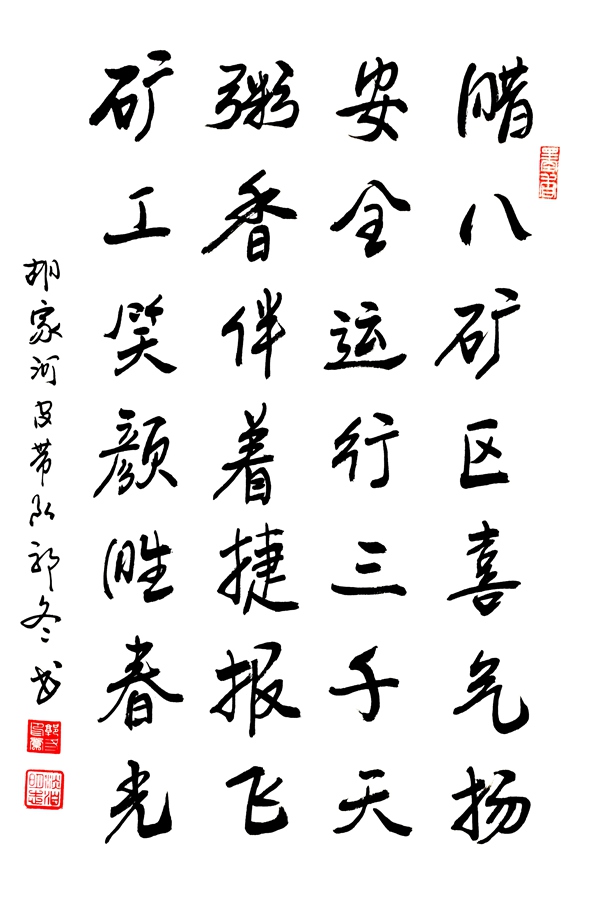 腊八矿区喜气扬
安全运行三千天
粥香伴着捷报飞
矿工笑颜胜春光
胡家河皮带队郭冬书